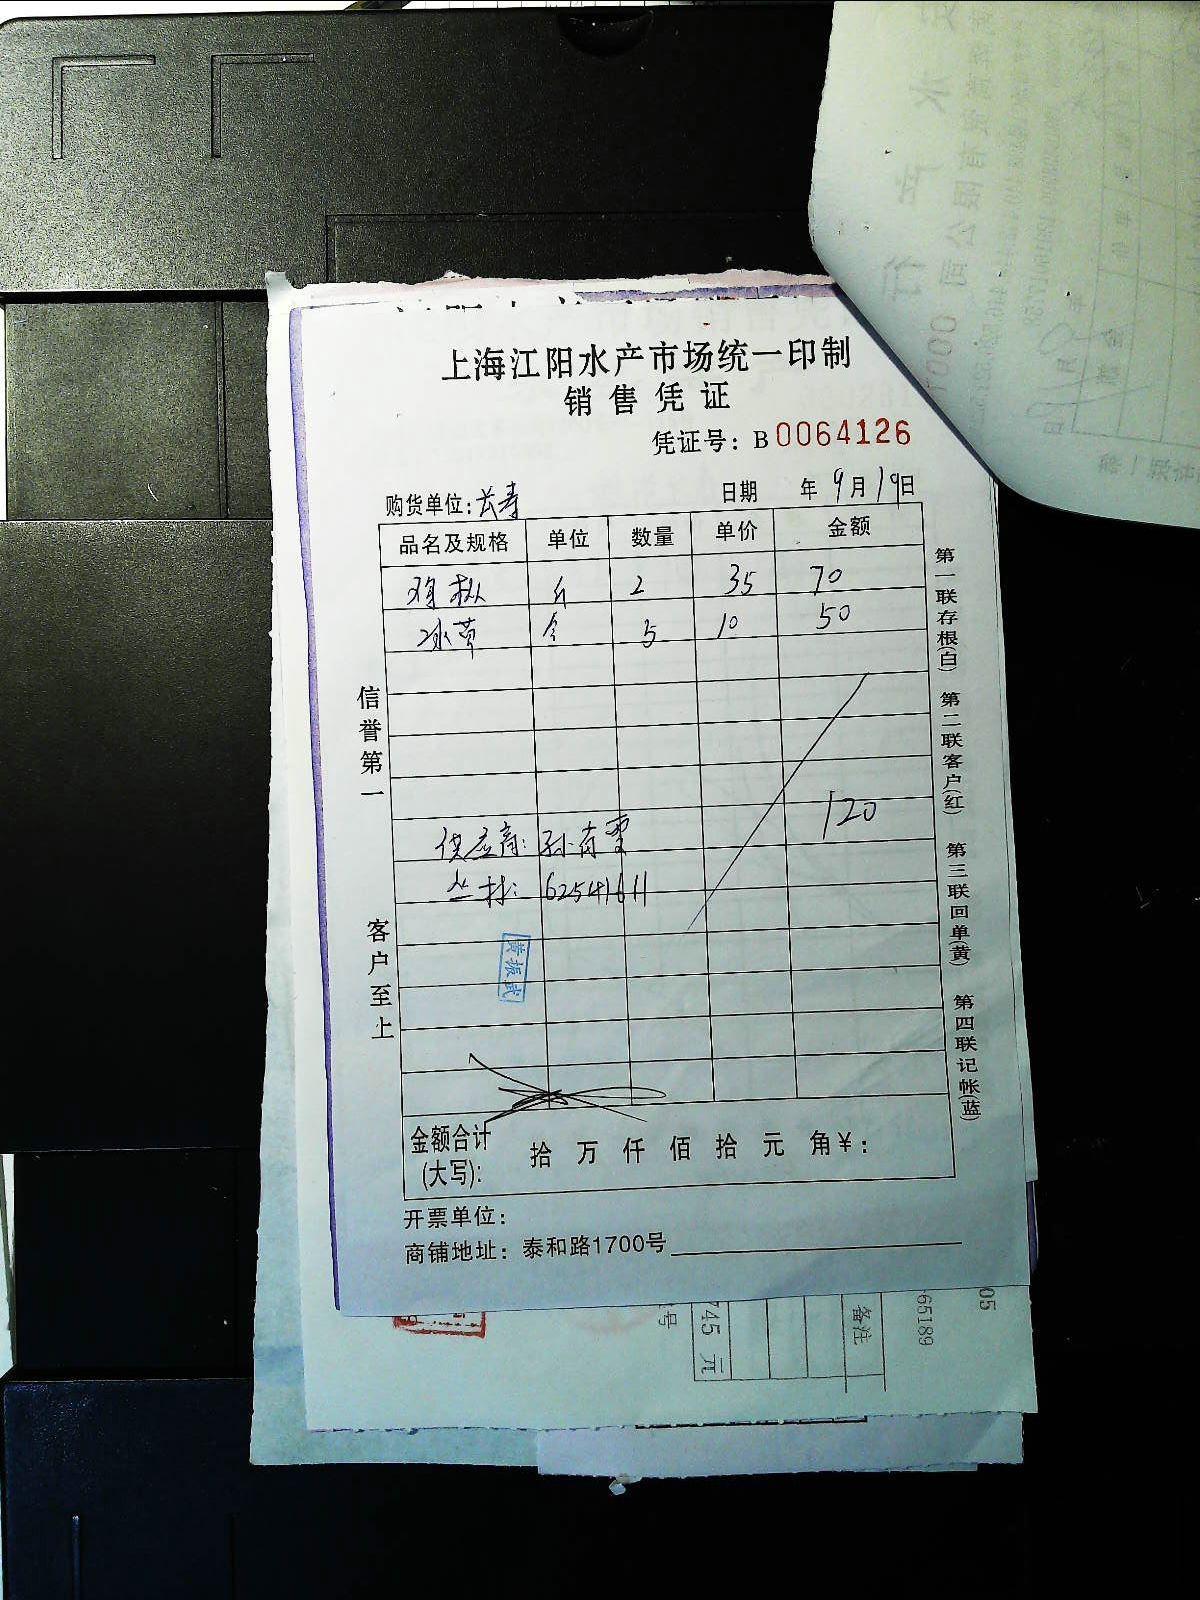 上海江阳水产市场统一印制
销售凭证
凭证号：B0064126
购货单位：长寿 日期 年9月19日
品名及规格 单位 数量 单价 金额
鸡枞 斤 2 35 70
冰草 盒 5 10 50
120
供应商：
丛林：62541611
黄振武
金额合计(大写)： 拾 万 仟 佰 拾 元 角 ￥：
开票单位：
商铺地址：泰和路1700号
信誉第一
客户至上
第一联存根(白) 第二联客户(红) 第三联回单(黄) 第四联记帐(蓝)
745 元
备注
65189
05